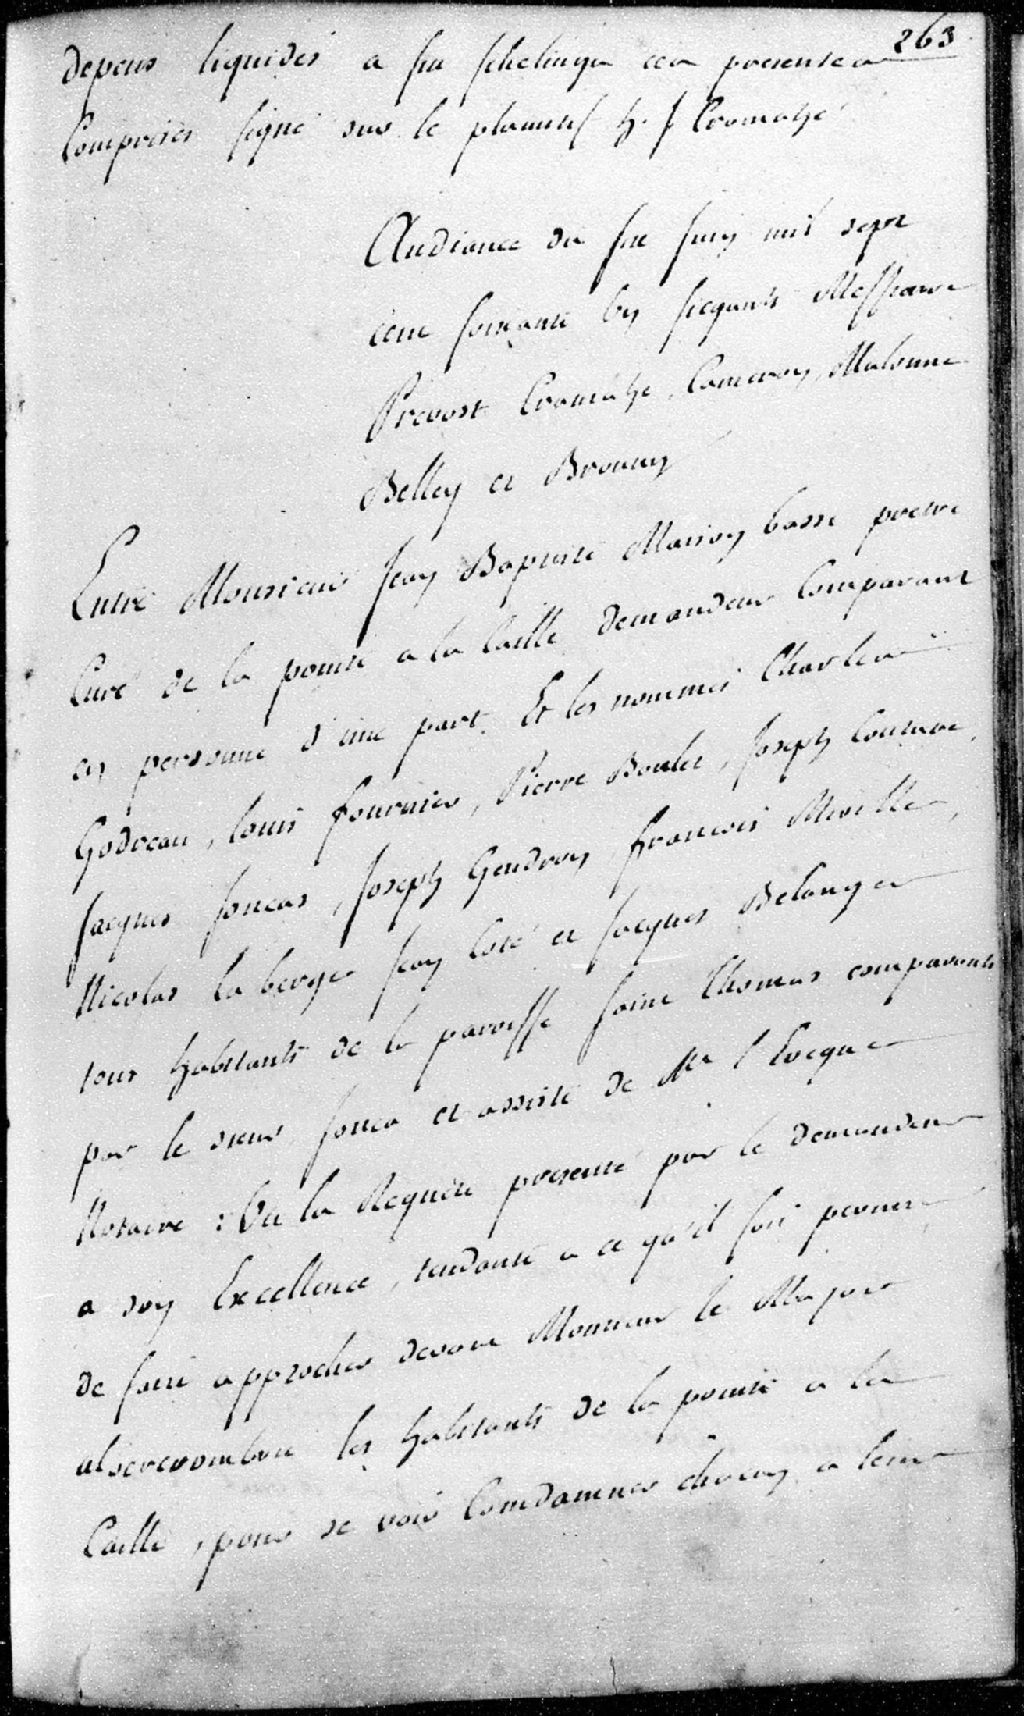 263
depens liquidés a six schelings ces presentes
Comprises signé sur le plumitif h. J Cramahé
Audiance du six juin mil sept
cent soixante un siegants Messieurs
Prevost Cramahe, Cameron, Malonne
Belley et Brouun
Entre Monsieur Jean Baptiste Maisonbasse prêtre
Curé de la pointe a la Caille demandeur Comparant
en personne d'une part. Et les nommés Charles
Godreau, louis fournier, Pierre Boulet, Joseph Couture,
Jacques Joncas, Joseph Gendron, francois Miville,
Nicolas laberge Jean Coté et Jacques Belanger
tous habitants de la paroisse saint Thomas comparants
par le sieur Jonca et assisté de Mr l'Eveque
Notaire : Vu la Requete presenté par le demandeur
a son Excellence, tendante a ce qu'il soit permis
de faire approcher devant Monsieur le Major
abercrombie les habitants de la pointe a la
Caille, pour se voir Condamner chacun a leur